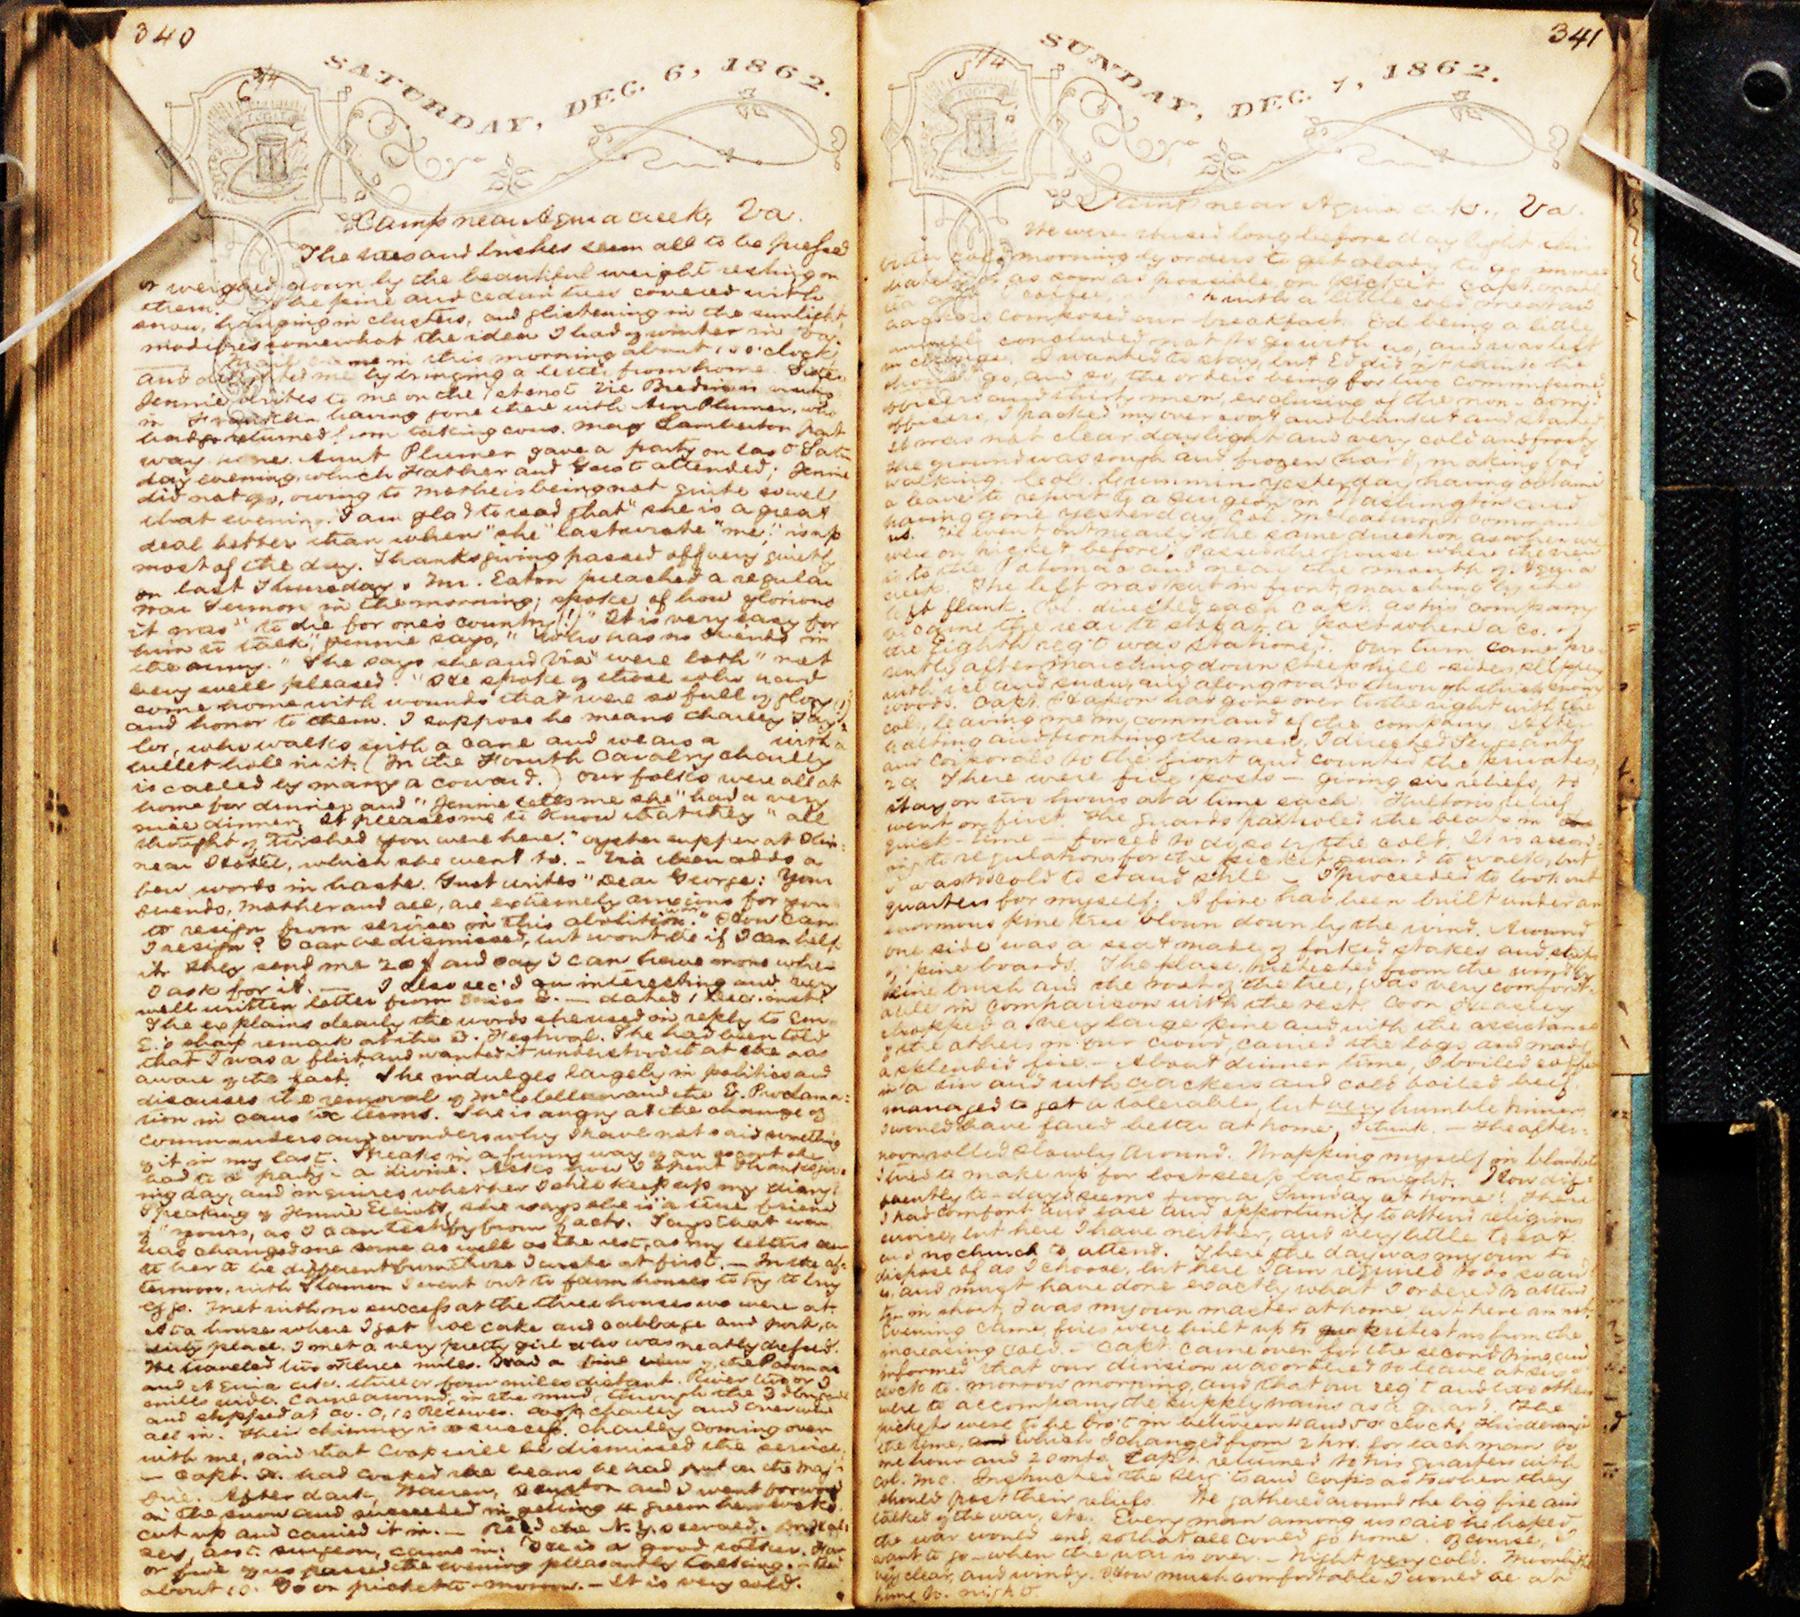 340
SATURDAY, DEC. 6, 1862.
6 3/4
Camp near Aquia creek, Va.
The trees and bushes seem all to be pressed
or weighed down by the beautiful weight resting on
them. The pine and cedar trees covered with
snow, hanging in clusters, and glistening in the sunlight,
modifies somewhat the idea I had of winter in Va.
came in this morning about 10 o'clock
and me by bringing a letter from home. Sister
Jennie writes to me on the 1st inst. Vic
in Franklin having gone there with Aunt Plumer, who
had returned from taking cous. Mag Lamberton part
way home. Aunt Plumer gave a party on last Satur
day evening, which Father and attended; Jennie
did not go, owing to Mother's being not quite so well
that evening. I am glad to read that "she is a great
deal better than when "she" last wrote "me;" is up
most of the day. Thanksgiving passed off very quietly
on last Thursday. Mr. Eaton preached a regular
war sermon in the morning; spoke of how glorious
it was "to die for one's country!!" "It is very easy for
him to talk," Jennie says, "who has no friends in
the army." She says she and Via "were both" "not
very well pleased." "He spoke of those who had
come home with wounds that were so full of glory (!)
and honor to them. I suppose he means Charley Tay-
lor, who walks with a cane and wears a with a
bullet hole in it. (In the Fourth Cavalry Charley
is called by many a coward.) Our folks were all at
home for dinner and "Jennie tells me she" had a very
nice dinner. It pleases me to know that they "all
thought of & wished you were here." oyster supper at
near Hotel, which she went to. – Via then adds a
few words in haste. Just writes "Dear George: Your
friends, Mother and all, are extremely anxious for you
to resign from service on this abolition." How can
I resign? I can be dismissed, but won't be if I can help
it. They send me 20$ and say I can have more when
I ask for it. – I also rec'd an interesting and very
well written letter from Miss E. – dated 1 Dec. inst.
She explains clearly the words she used in reply to Em
E.'s sharp remark at the S. Festival. She had been told
that I was a flirt and wanted it understood that she was
aware of the fact. She indulges largely in politics and
discusses the removal of McClellan and the E. Proclama-
tion in terms. She is angry at the change of
commanders and wonders why I have not said something
of it in my last. Speaks in a funny way of an escort she
had to a party – a divine. Asks how I spent Thanksgiv-
ing day, and inquires whether I still keep up my diary!
Speaking of Jennie Elliott, she says she is "a true friend
of" yours, as I can testify from facts. Says that war
has changed me some as well as the rest, as my letters
to her to be different from those I wrote at first. – In the af-
ternoon, with I went out to farm houses to try to buy
eggs. Met with no success at the three houses we were at.
At a house where I got hoe cake and cabbage and pork, a
dirty place, I met a very pretty girl who was neatly dressed.
We traveled two or three miles. Had a fine view of the Potomac
and Aquia crk. three or four miles distant. River two or 3
miles wide. Came around, in the mud, through the 3 brigade
and stopped at Co. C, 10 Reserves. Coop, Charley and
all in. Their chimney is a success. Charley coming over
with me, said that Coop will be dismissed the service.
– Capt. H. had cooked the beans he had put on the
fire. After dark, Warren, and I went forward
in the snow and succeeded in getting a green hemlock
cut up and carried it in. – Read the N.Y. Observer.
ser, asst. surgeon, came in. He is a good talker. Four
or five of us passed the evening pleasantly talking. –
about 10. Go on picket to-morrow. – It is very cold.
341
SUNDAY, DEC. 7, 1862.
5 1/4
Camp near Aquia crk., Va.
We were roused long before day light this
bitter cold morning by orders to get ready to go imme-
diately, as soon as possible, on picket. Capt. made
coffee, with a little cold meat and
crackers composed our breakfast. Ed being a little
unwell concluded not to go with us, and was left
in charge. I wanted to stay, but Ed did not think he
should go, and so, the orders being for two commissioned
officers and thirty men, exclusive of the non-com'd
officers, I packed my over coat and blanket and started.
It was not clear daylight and very cold and frosty
The ground was rough and frozen hard, making bad
walking. Col. yesterday having obtained
a leave to report to a surgeon in Washington and
having gone yesterday, Col. McCalmont commanded
us. We went out nearly the same direction as when we
were on picket before. Passed the house where the view
is to the Potomac and near the mouth of Aquia
creek. The left was put in front, marching by the
left flank. Col. directed each Capt. as his company
became the rear to stop at a post where a co. of
the Eighth reg't was stationed. Our turn came pre-
sently after marching down steep hill-sides, slippery
with ice and snow, and along roads through thick snowy
woods. Capt. Hapson has gone over to the right with the
col., leaving me in command of the company. After
halting and fronting the men, I directed Sergeants
and Corporals to the front and counted the privates,
29. There were five posts – giving six reliefs, to
stay on two hours at a time each. Fulton's relief
went on first. The guards patroled the beats in
quick time – forced to do so by the cold. It is accord-
ing to regulations for the picket guard to walk, but
'twas too cold to stand still – I proceeded to look out
quarters for myself. A fire had been built under an
enormous pine tree blown down by the wind. Around
one side was a seat made of forked stakes and strips
of pine boards. The place, protected from the wind by
pine brush and the root of the tree, was very comfort-
able in comparison with the rest. Coon Heasley
chopped a very large pine and with the assistance
of the others in our crowd, carried the logs and made
a splendid fire. – About dinner time, I boiled coffee
in a tin and with crackers and cold boiled beef,
managed to get a tolerable, but very humble dinner.
I would have fared better at home, I think. – The after-
noon rolled slowly around. Wrapping myself in blankets
I tried to make up for lost sleep last night. How dif-
ferently to-day seems from a Sunday at home! There
I had comfort and ease and opportunity to attend religious
services, but here I have neither, and very little to eat
and no church to attend. There the day was my own to
dispose of as I choose, but here I am required to do so and
so, and must have done exactly what I ordered to attend
to; in short, I was my own master at home but here am not.
Evening came, fires were built up to protect us from the
increasing cold. – Capt. came over for the second time, and
informed that our division was ordered to leave at six o'
clock to-morrow morning, and that our reg't and two others
were to accompany the supply trains as a guard. The
pickets were to be bro't in between 4 and 5 o'clock. This deranged
the time, which I changed from 2 hrs. for each man to
one hour and 20 mts. Capt. returned to his quarters with
Col. Mc. Instructed the Serg'ts and Corp's as to when they
should post their reliefs. We gathered around the big fire and
talked of the war, etc. Every man among us said he hoped
the war would end, so that all could go home. Of course, I
want to go – when the war is over. – Night very cold. Moonlight,
very clear, and windy. How much comfortable I would be at
home to-night.